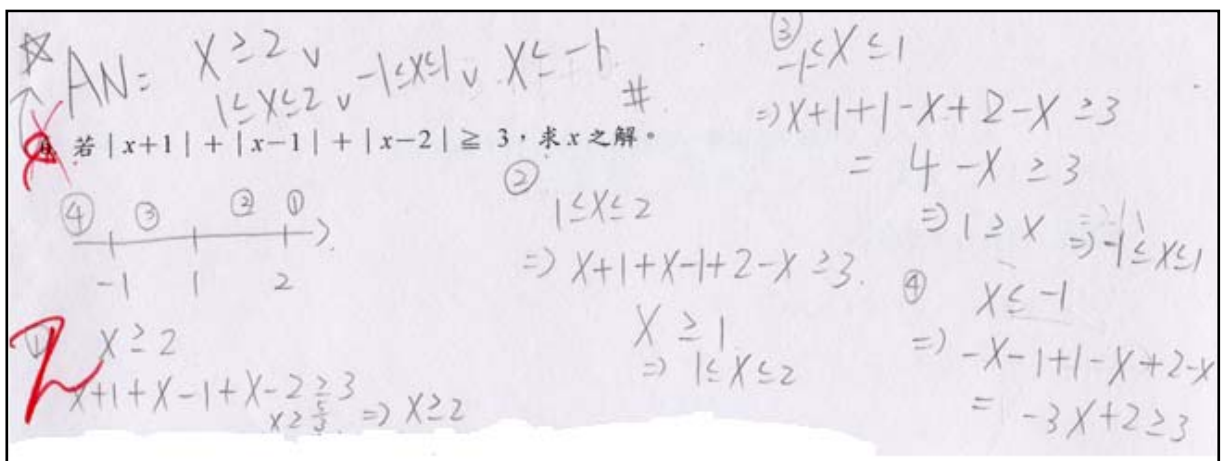 AN= X ≥ 2 ∨
1 ≤ X ≤ 2 ∨ -1 ≤ X ≤ 1 ∨ X ≤ -1 #
若 | x+1 | + | x-1 | + | x-2 | ≧ 3，求 x 之解。
④ ③ ② ①
-1 1 2
① X ≥ 2
X+1+X-1+X-2 ≥ 3
X ≥ 5/3 ⇒ X ≥ 2
②
1 ≤ X ≤ 2
⇒ X+1+X-1+2-X ≥ 3.
X ≥ 1
⇒ 1 ≤ X ≤ 2
③
-1 ≤ X ≤ 1
⇒ X+1+1-X+2-X ≥ 3
= 4-X ≥ 3
⇒ 1 ≥ X ⇒ -1 ≤ X ≤ 1
④ X ≤ -1
⇒ -X-1+1-X+2-X
= -3X+2 ≥ 3